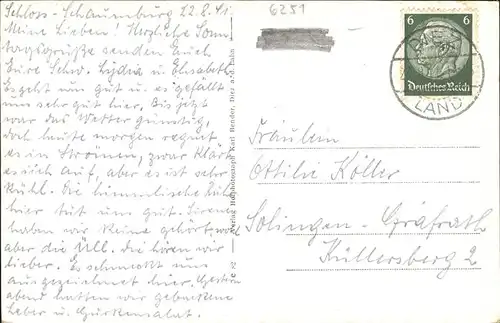 Schloss-Schaumburg 22.8.41.
Meine Lieben! Herzliche Sonn-
tagsgrüße senden Euch
Eure Schw. Lydia u. Elisabeth
Es geht uns gut u. es gefällt
uns sehr gut hier. Bis jetzt
war das Wetter günstig,
doch heute morgen regnet
es in Strömen, zwar klärt
es sich auf, aber es ist sehr
kühl. Die himmlische Ruhe
hier tut uns gut. Sirenen
haben wir keine gehört, wohl
aber die die hören wir
lieber. Es schmeckt uns
ausgezeichnet hier. Gestern
abend hatten wir gebackene
Leber u. Gurkensalat.
Verlag Hofphotograph Karl Bender, Diez a. d. Lahn
6251
6 6
Deutsches Reich
LAND
Fräulein
Ottilie Köller
Solingen-Gräfrath
Küllersberg 2